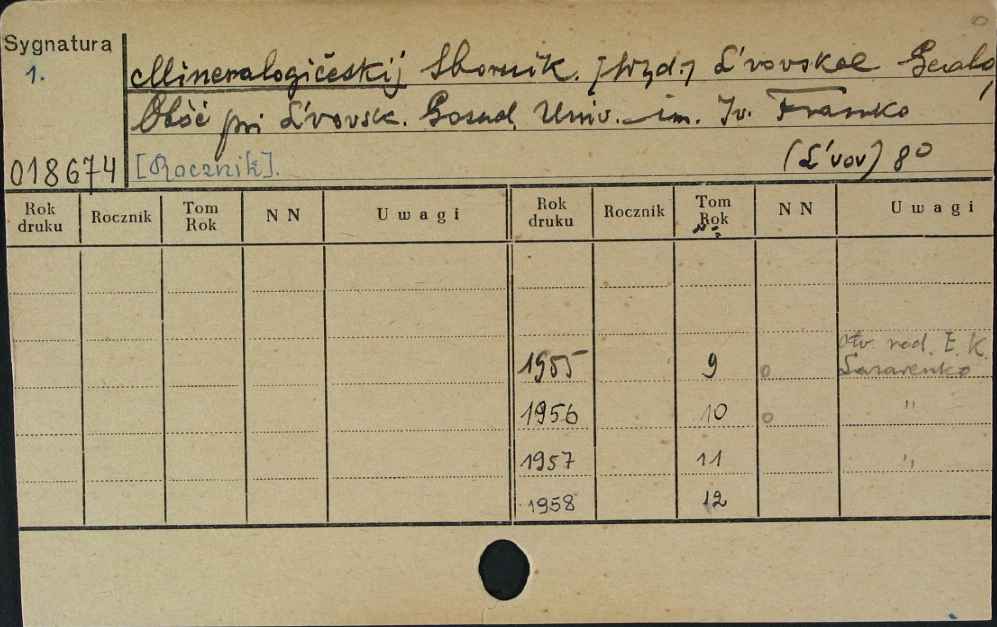 Sygnatura
1.
018674
Mineralogičeskij Sbornik. [Wyd.] L'vovskoe Geolo
Obšč pri L'vovsk. Gosud. Univ. im. Iv. Franko
[Rocznik]. (L'vov) 8º
Rok druku Rocznik Tom Rok NN Uwagi Rok druku Rocznik Tom Rok NN Uwagi
Nº
Otv. red. E. K.
1955 9 o Lazarenko
1956 10 o "
1957 11 "
1958 12